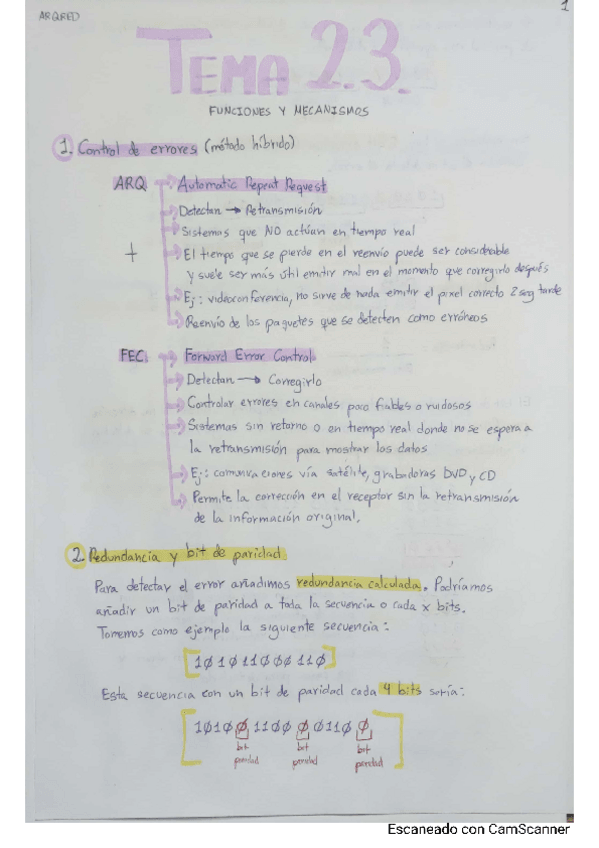 ARQRED
1
TEMA 2.3.
FUNCIONES Y MECANISMOS
1. Control de errores (método híbrido)
ARQ → Automatic Repeat Request
→ Detectan → Retransmisión
→ Sistemas que NO actúan en tiempo real
+ → El tiempo que se pierde en el reenvío puede ser considerable
y suele ser más útil emitir mal en el momento que corregirlo después
→ Ej: videoconferencia, no sirve de nada emitir el pixel correcto 2 seg tarde
→ Reenvío de los paquetes que se detecten como erróneos
FEC → Forward Error Control
→ Detectan → Corregirlo
→ Controlar errores en canales poco fiables o ruidosos
→ Sistemas sin retorno o en tiempo real donde no se espera a
la retransmisión para mostrar los datos
→ Ej: comunicaciones vía satélite, grabadoras DVD y CD
→ Permite la corrección en el receptor sin la retransmisión
de la información original.
2. Redundancia y bit de paridad
Para detectar el error añadimos redundancia calculada. Podríamos
añadir un bit de paridad a toda la secuencia o cada x bits.
Tomemos como ejemplo la siguiente secuencia:
[1Ø1Ø11ØØØ11Ø]
Esta secuencia con un bit de paridad cada 4 bits sería:
[1Ø1Ø Ø 11ØØ Ø Ø11Ø Ø]
bit paridad bit paridad bit paridad
Escaneado con CamScanner